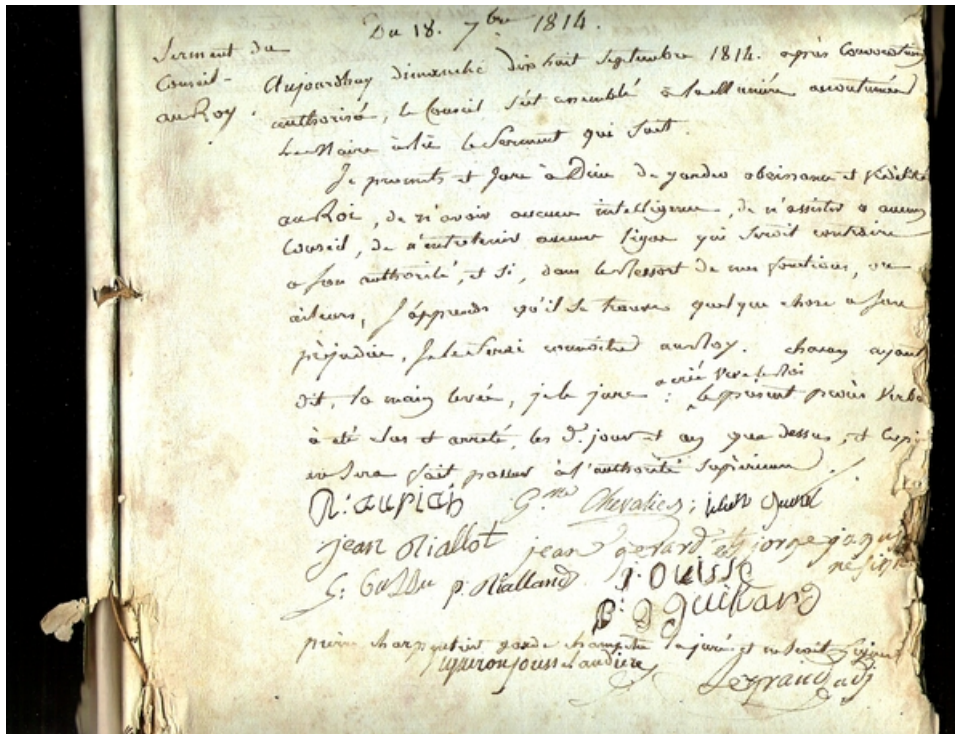 Du 18. 7bre 1814.
Serment du
Conseil
au Roy.
Aujourdhuy dimanche dix huit Septembre 1814. après Convocation
authorisé, le Conseil s'est assemblé à la manière accoutumée
Le Maire le Serment qui Suit.
Je promets et Jure à Dieu de garder obeissance et fidélité
au Roi, de n'avoir aucune intelligence, de n'assister a aucun
Conseil, de n'entretenir aucune ligue qui Seroit contraire
a Son authorité, et Si, dans le Ressort de mes fonctions, ou
ailleurs, J'apprends qu'il Se trouve quelque chose a Son
préjudice, Je le Ferai connoitre au Roy. chacun ayant
dit, la main levée, je le jure : a crié Vive le Roi
Le présent procès Verbal
à été clos et arreté, les d. jour et an que dessus, et Copie
en Sera fait passer à l'authorité Supérieure.
R: auriab Gme Chevalier; julien
jean Riallot jean gerard et
ne signe
G: p. Rialland J. Ouisse
P: guihard
pierre charpentier garde champetre la juré et ne Scait Signer
Legrand adj